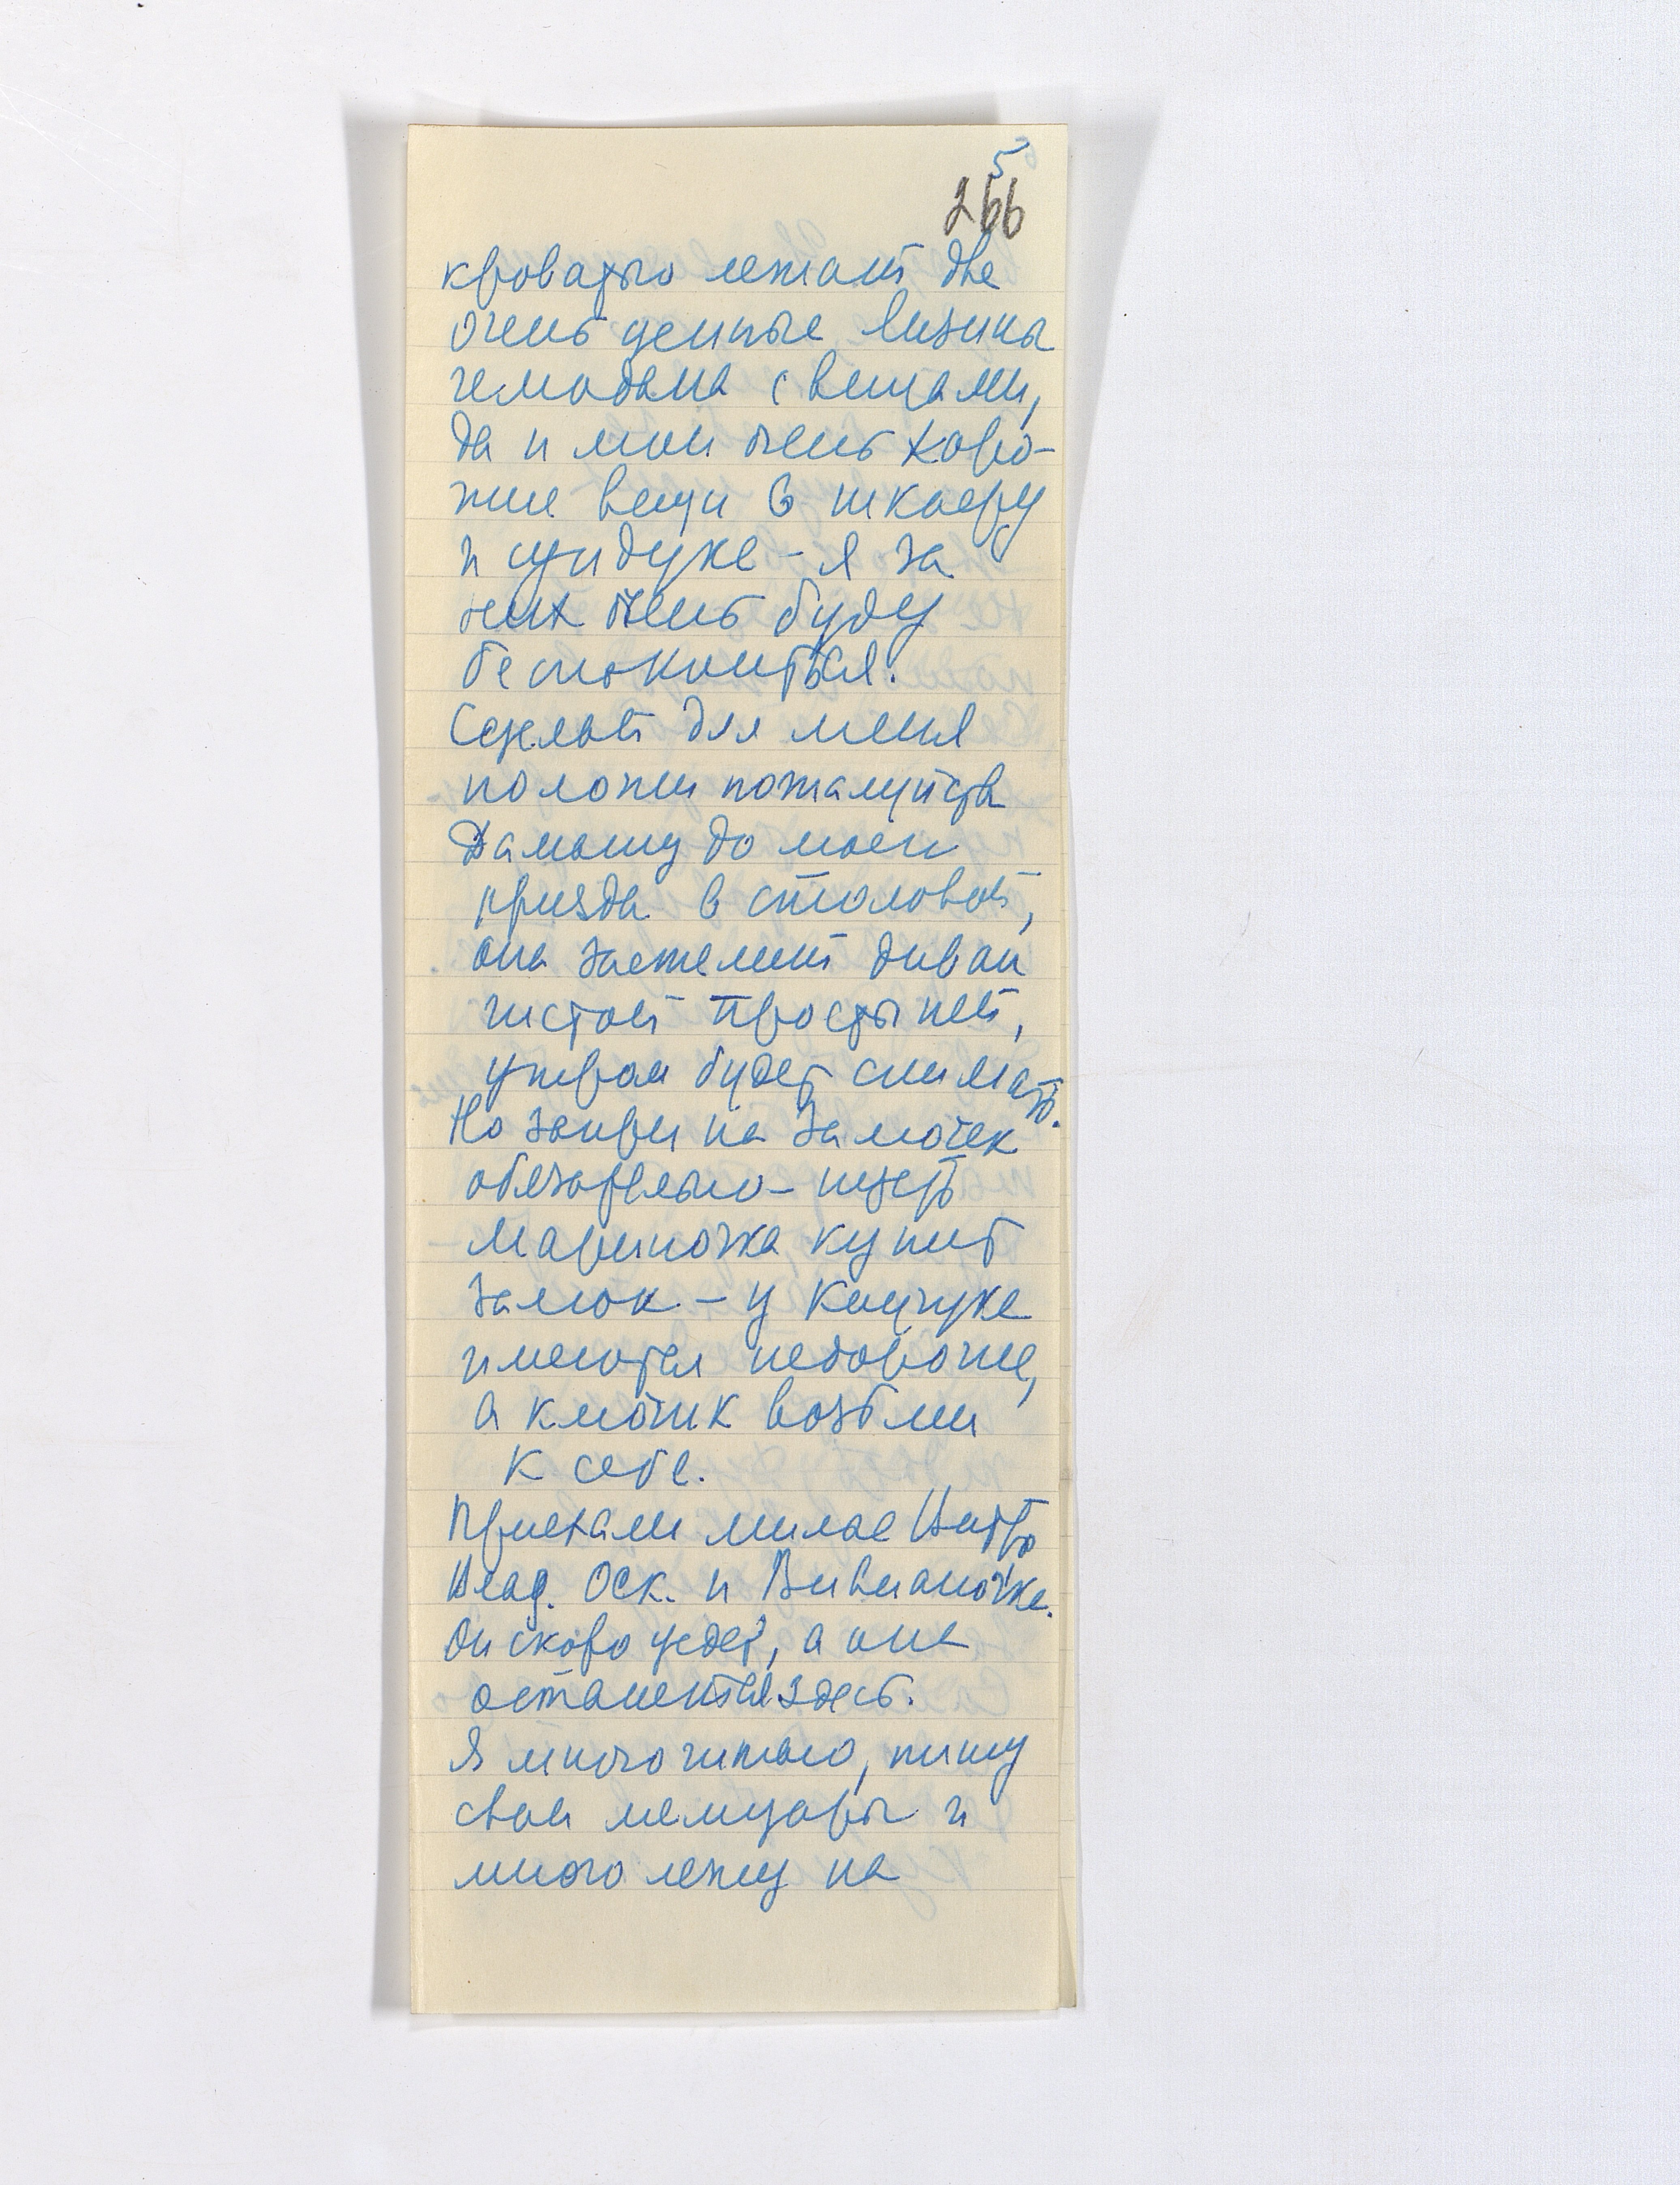 5
266
кроватью лежат две
очень ценные Лизины
чемодана с вещами,
да и мои очень хоро-
шие вещи в шкафу
и сундуке – я за
них очень буду
беспокоиться.
Сделай для меня
положи пожалуйста
до моего
приезда в столовой,
она застелит диван
чистой простыней,
утром будет снимать.
Но запри на замочек
обязательно – пусть
Мариночка купит
замок – у
имеются недорогие,
а ключик возьми
к себе.
Приехали милые
Влад. Оск. и Вивианочка.
Он скоро уедет, а она
останется здесь.
Я много читаю, пишу
свои мемуары и
много лежу на